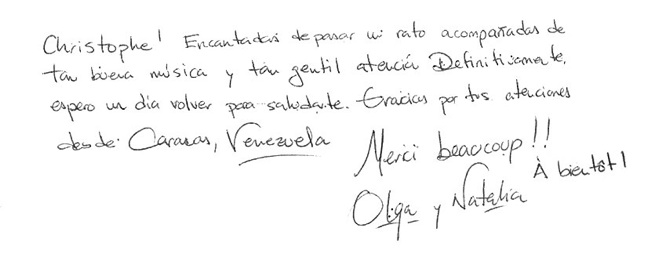 Christophe! Encantadas de pasar un rato acompañadas de
tan buena música y tan gentil atención Definitivamente,
espero un día volver para saludarte. Gracias por tus atenciones
desde: Caracas, Venezuela
Merci beaucoup!!
À bientôt!
Olga y Natalia